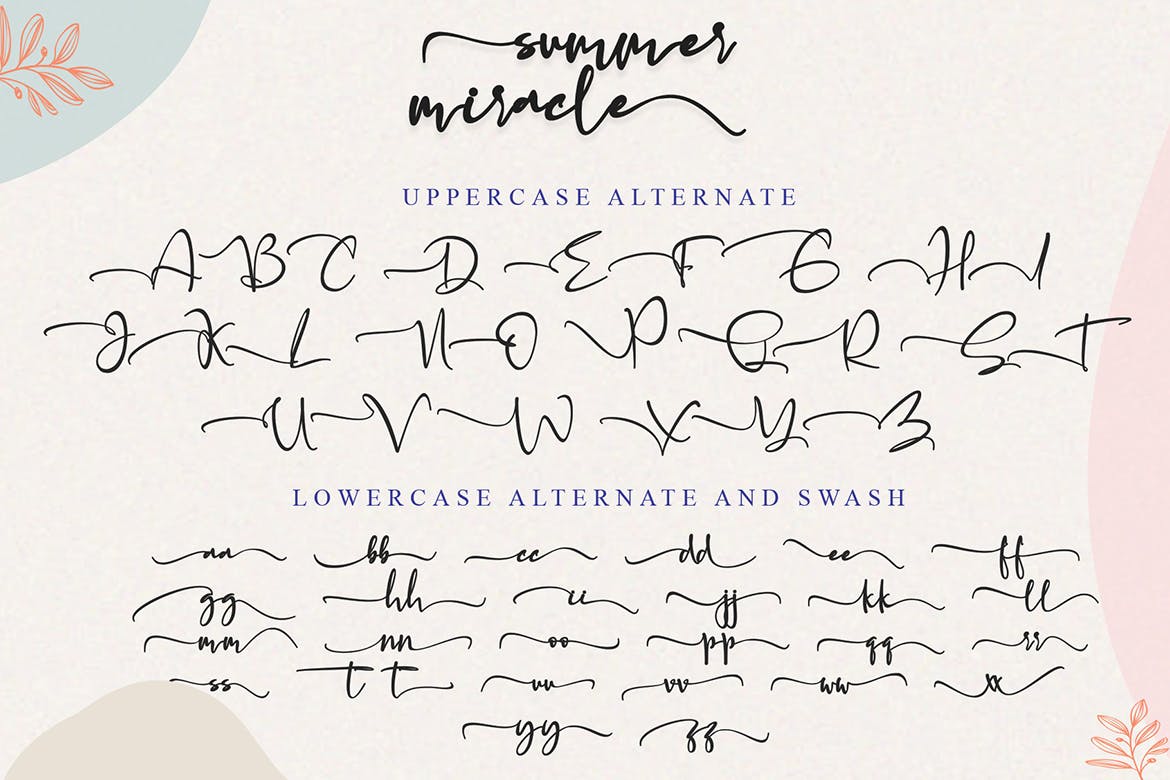 summer
miracle
UPPERCASE ALTERNATE
A B C D E F G H I
J K L N O P Q R S T
U V W X Y Z
LOWERCASE ALTERNATE AND SWASH
aa bb cc dd ee ff
gg hh ii jj kk ll
mm nn oo pp qq rr
ss tt uu vv ww xx
yy zz